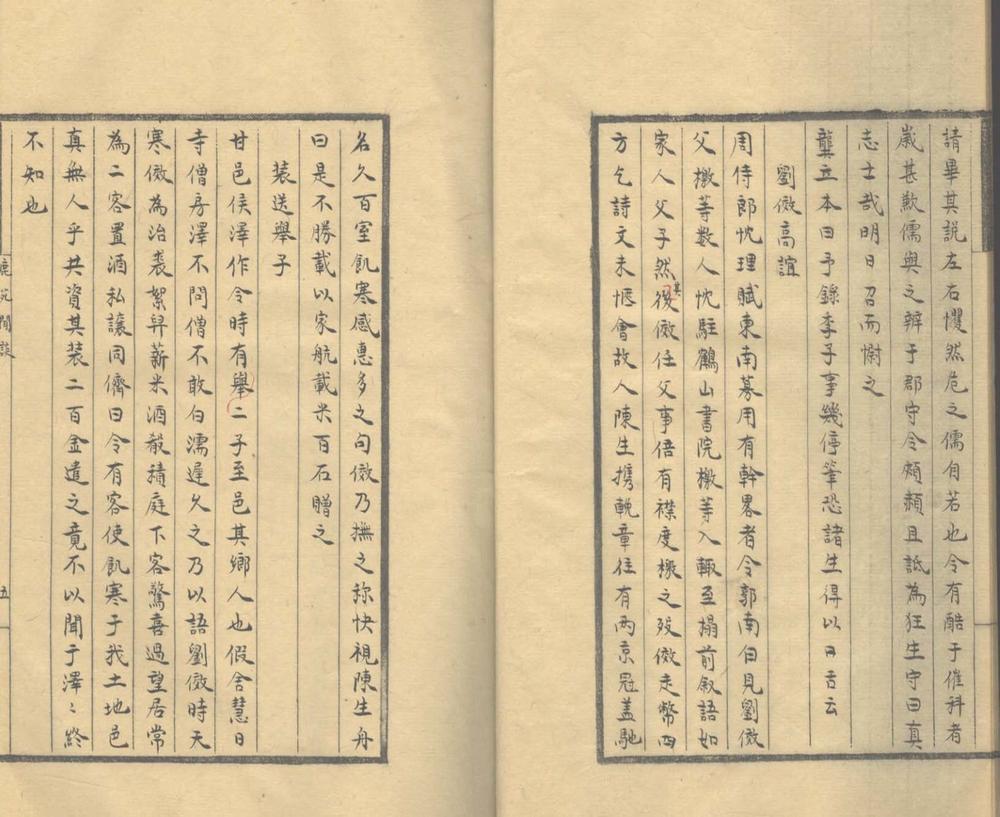 請畢其説左右懼然危之儒自若也令有酷于催科者
嵗甚歉儒與之辨于郡守令頻顣且詆為狂生守曰真
志士哉明日召而慰之
龔立本曰予錄李子事幾停筆恐諸生得以口舌云
劉儆高誼
周侍郎忱理賦東南募用有幹畧者令郭南白見劉儆
父檄等數人忱駐鶴山書院檄等入輙至榻前叙語如
家人父子然後儆任父事倍有襟度檄之歿儆走幣四
其
方乞詩文未愜會故人陳生携輓章往有兩京冠盖馳
名久百室飢寒感惠多之句儆乃撫之稱快視陳生舟
曰是不勝載以家航載米百石贈之
裝送舉子
甘邑侯澤作令時有舉二子至邑其鄉人也假舍慧日
寺僧房澤不問僧不敢白濡遲久之乃以語劉儆時天
寒儆為治裘絮舁薪米酒殽積庭下客驚喜過望居常
為二客置酒私讓同儕曰令有客使飢寒于我土地邑
真無人乎共資其装二百金遣之竟不以聞于澤〻終
不知也
鹿苑閒談
五